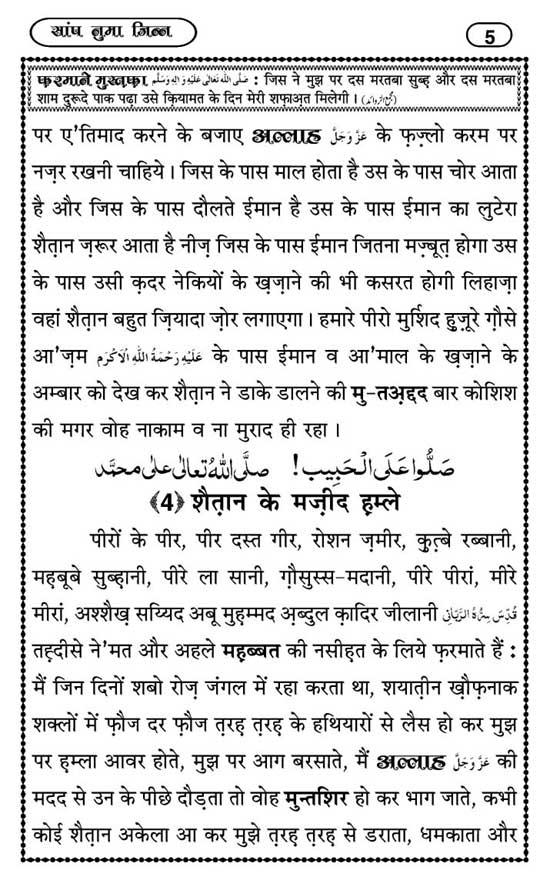 सांप नुमा जिन्न
5
फ़रमाने मुस्तफ़ा صَلَّى اللهُ تَعَالٰى عَلَيْهِ وَاٰلِهٖ وَسَلَّم : जिस ने मुझ पर दस मरतबा सुब्ह और दस मरतबा
शाम दुरूदे पाक पढ़ा उसे क़ियामत के दिन मेरी शफ़ाअत मिलेगी । (مجمع الزوائد)
पर ए'तिमाद करने के बजाए अल्लाह عَزَّ وَجَلَّ के फ़ज़्लो करम पर
नज़र रखनी चाहिये । जिस के पास माल होता है उस के पास चोर आता
है और जिस के पास दौलते ईमान है उस के पास ईमान का लुटेरा
शैत़ान ज़रूर आता है नीज़ जिस के पास ईमान जितना मज़्बूत़ होगा उस
के पास उसी क़दर नेकियों के ख़ज़ाने की भी कसरत होगी लिहाज़ा
वहां शैत़ान बहुत ज़ियादा ज़ोर लगाएगा । हमारे पीरो मुर्शिद हुज़ूरे ग़ौसे
आ'ज़म عَلَيْهِ رَحْمَةُ اللهِ الْاَكْرَم के पास ईमान व आ'माल के ख़ज़ाने के
अम्बार को देख कर शैत़ान ने डाके डालने की मु-तअ़द्दद बार कोशिश
की मगर वोह नाकाम व ना मुराद ही रहा ।
صَلُّوا عَلَى الْحَبِيب! صلَّى اللهُ تعالٰى على محمَّد
﴾4﴿ शैत़ान के मज़ीद ह़म्ले
पीरों के पीर, पीर दस्त गीर, रोशन ज़मीर, क़ुत़्बे रब्बानी,
मह़बूबे सुब्ह़ानी, पीरे ला सानी, ग़ौसुस्स-मदानी, पीरे पीरां, मीरे
मीरां, अश्शैख़ सय्यिद अबू मुह़म्मद अ़ब्दुल क़ादिर जीलानी قُدِّسَ سِرُّهُ الرَّبَّانِي
तह़दीसे ने'मत और अहले मह़ब्बत की नसीह़त के लिये फ़रमाते हैं :
मैं जिन दिनों शबो रोज़ जंगल में रहा करता था, शयात़ीन ख़ौफ़नाक
शक्लों में फ़ौज दर फ़ौज त़रह़ त़रह़ के हथियारों से लैस हो कर मुझ
पर ह़म्ला आवर होते, मुझ पर आग बरसाते, मैं अल्लाह عَزَّ وَجَلَّ की
मदद से उन के पीछे दौड़ता तो वोह मुन्तशिर हो कर भाग जाते, कभी
कोई शैत़ान अकेला आ कर मुझे त़रह़ त़रह़ से डराता, धमकाता और